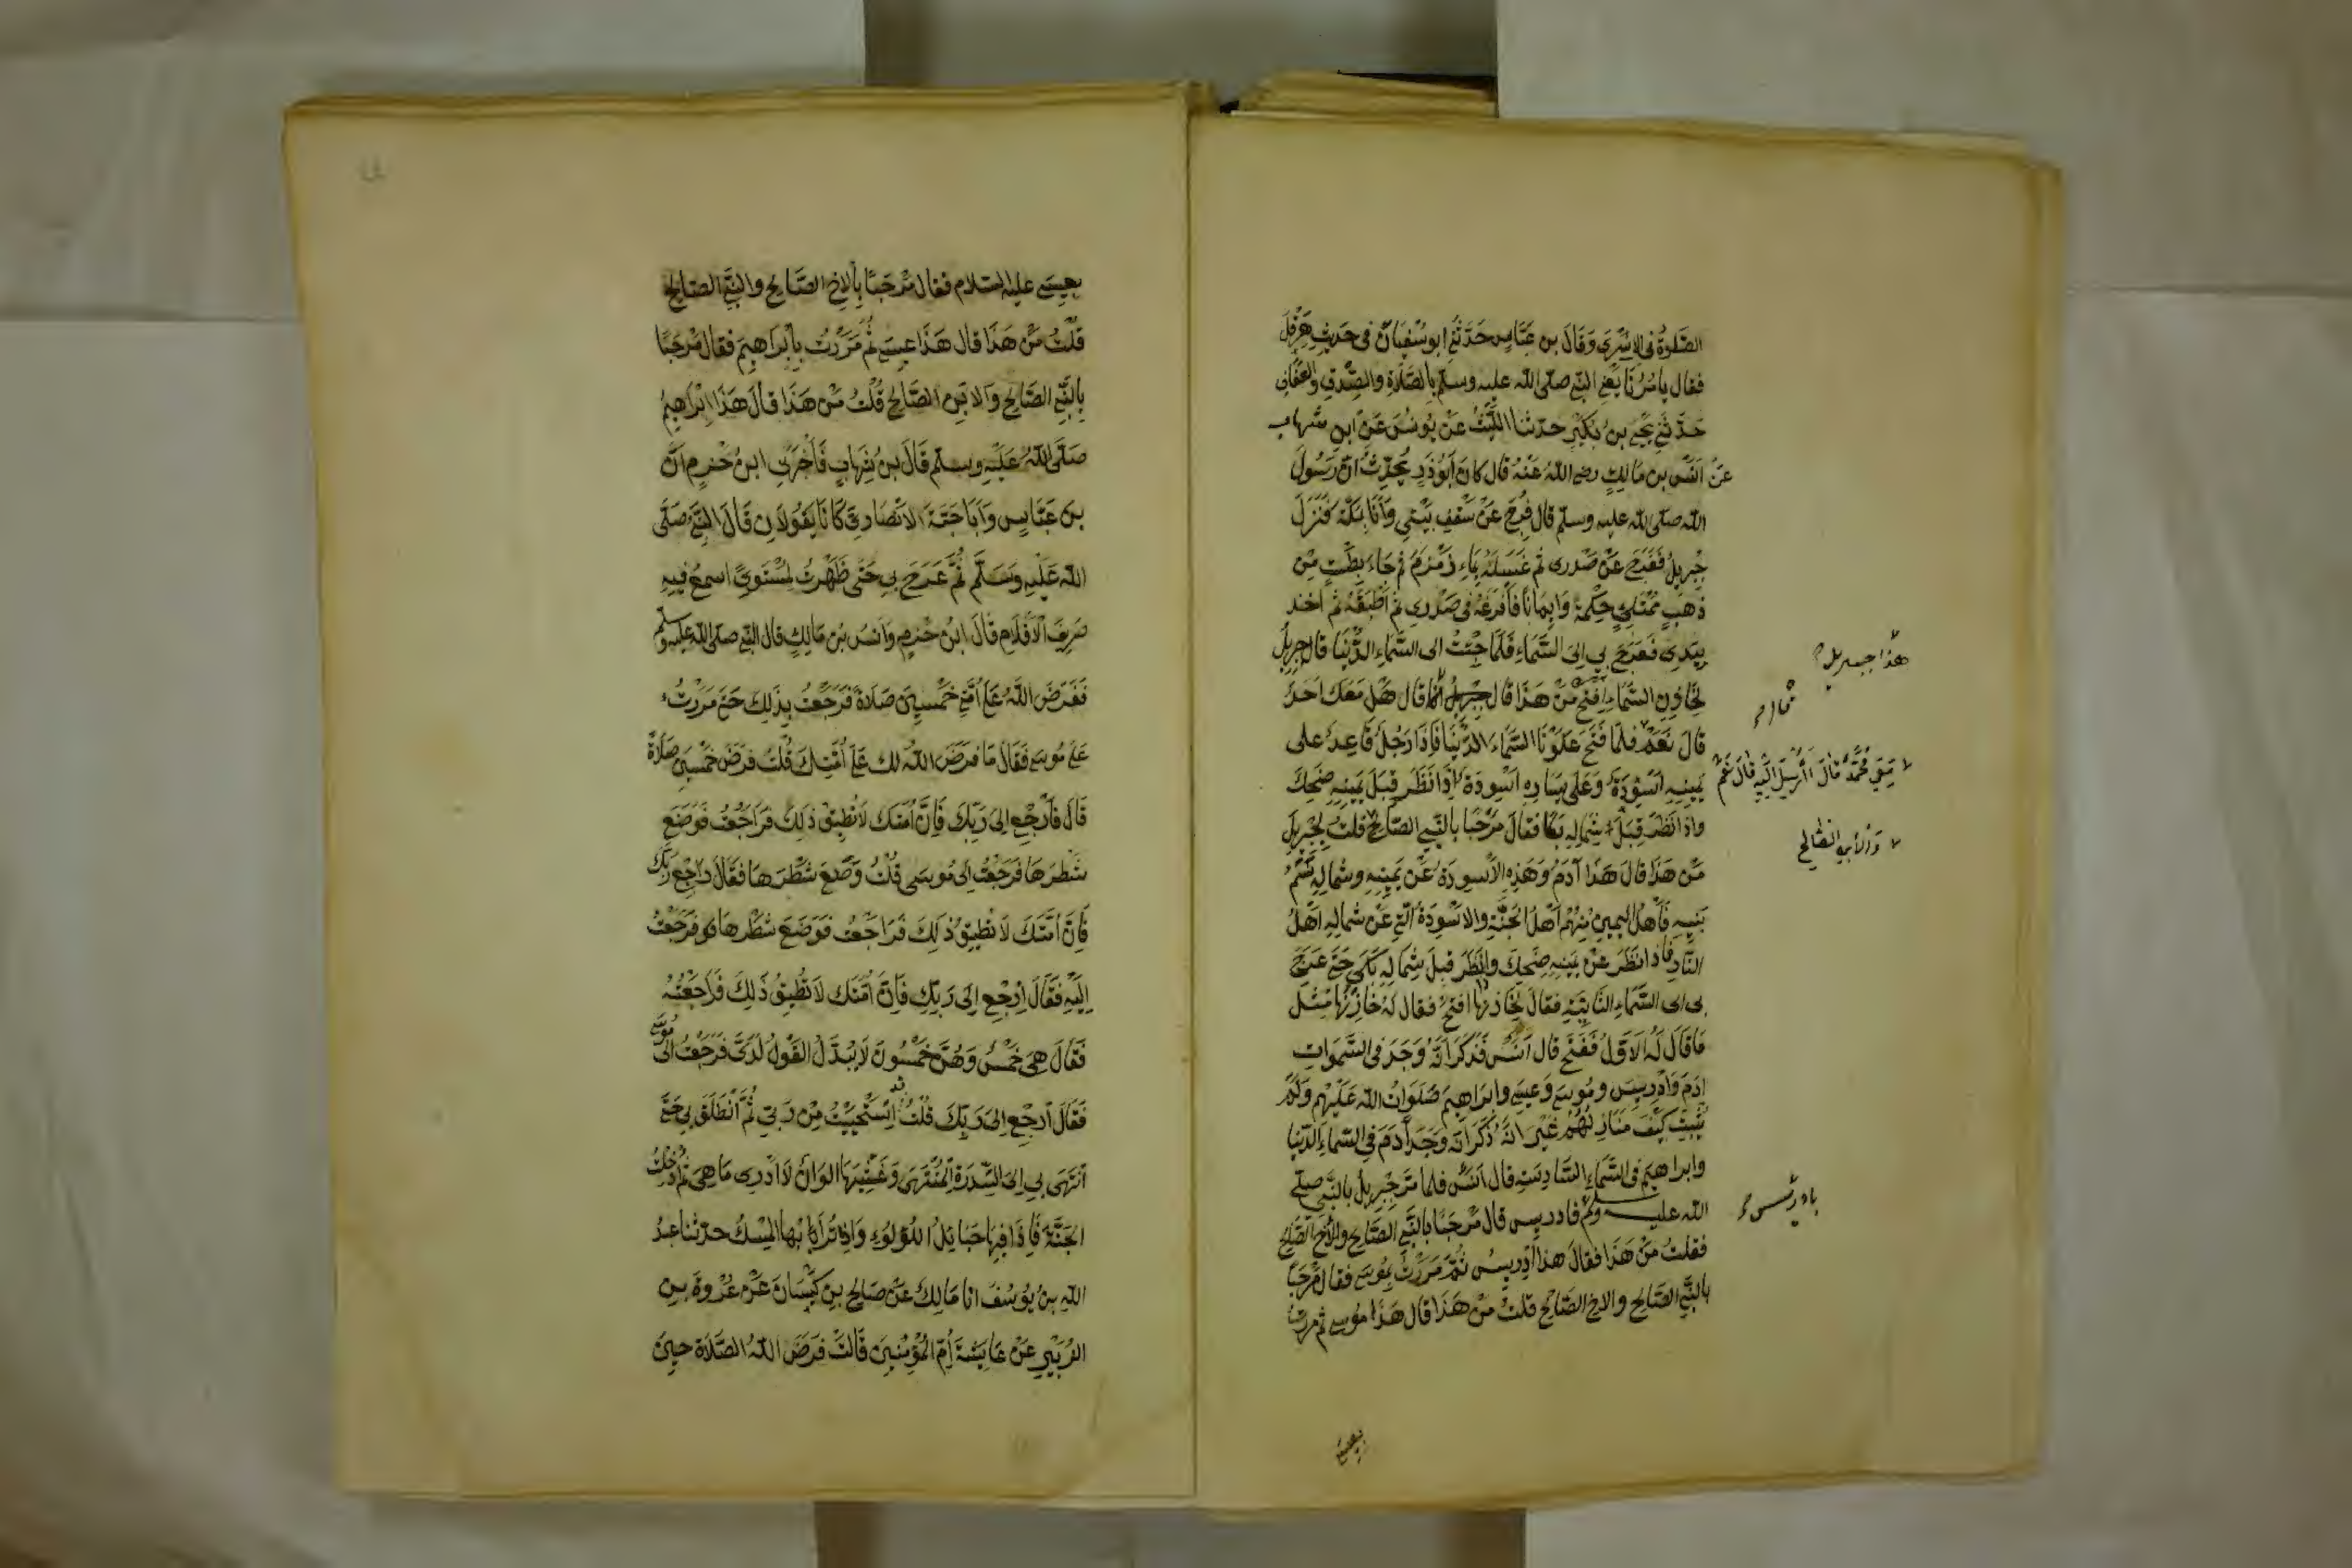 الصَّلوةُ في الاسْرَى وَقَالَ بن عَبَّاسٍ حَدَّثَنِي ابو سُفْيَانَ في حَدِيثِ هِرَقْلَ
فقال يامُرُنَا يَعْنِي النَّبِي صلّى الله عليه وسلم بِالصَّلاةِ والصِّدقِ والعَفَافِ
حَدّثَنِي يَحْيَى بنُ بُكَيْرٍ حدثنا اللَّيْثُ عَنْ يُونُسَ عَنْ ابنِ شهاب
عَنْ أنَسِ بن مَالِكٍ رضى اللهُ عَنْهُ قال كانَ أبُو ذَرٍ يُحَدِّثُ انّ رَسُولَ
الله صلى الله عليه وسلّم قال فُرِجَ عَنْ سَقْفِ بَيْتِي وَأنَا بمَكّةَ فَنَزَلَ
جِبْرِيلُ فَفَرَجَ عَنْ صَدْرِى ثم غَسَلَهُ بِمَاءِ زَمْزَمَ ثم جَاءَ بِطَسْتٍ مِنْ
ذَهَبٍ مُمْتَلِئٍ حِكْمَةً وَايمَانًا فأفْرَغَهُ في صَدْرِى ثم أطْبَقَهُ ثم أخذ
بِيَدِى فَعَرَجَ بِي اِلىَ السَّمَاءِ فَلَمّا جِئْتُ الى السَّمَاءِ الدُّنْيَا قال جِبْرِيلُ
لِخَازِنِ السَّمَاءِ افْتَحْ مَنْ هَذَا قال جبريل قال هَلْ مَعَكَ احَدٌ
هذا جبريل
ثم قال
قالَ نَعَمْ فلمّا فَتَحَ عَلَوْنَا السَّمَاءَ الدُّنْيَا فَاذَا رَجُلٌ قَاعِدٌ على
مَعِي مُحَمَّدٌ قالَ أأُرْسِلَ الَيْهِ قالَ نَعَمْ
يَمِينِهِ اَسْوِدَةٌ وَعَلَى يَسَارِهِ اَسْوِدَة اِذَا نَظَرَ قِبَلَ يَمِينِهِ ضَحِكَ
واذا نَظَرَ قِبَلَ شِمَالِهِ بَكَا فقالَ مَرْحَبًا بالنَّبِي الصَّالِحِ قلتُ لِجِبْرِيلَ
وَالابنِ الصَّالح
مَنْ هَذَا قالَ هَذَا آدَمُ وَهَذِهِ الأسْوِدَةُ عَنْ يَمِينِهِ وشمَالِهِ نَسَمُ
بَنِيهِ فَأهْلُ اليَمِينِ مِنْهُمْ أهْلُ الجَنَّةِ والاسْوِدَةُ الّتي عَنْ شمالِهِ اَهْلُ
النّارِ فَاذَا نَظَرَ عَنْ يَمِينِهِ ضَحِكَ واذا نَظَرَ قِبلَ شِمَالِهِ بَكَى حَتَّى عَرَجَ
بى الى السَّمَاءِ الثّانِيَةِ فقالَ لِخَازِنِهَا افتَحْ فقال لهُ خَازِنُهَا مِثْلَ
مَا قَالَ لَهُ الاَوّلُ فَفَتَحَ قال اَنَسٌ فَذَكَرَ اَنّهُ وَجَدَ في السَّمَوَاتِ
اَدَمَ وَادْرِيسَ ومُوسَى وَعِيسَى وابراهيمَ صَلَوَاتُ الله عَلَيْهِمْ وَلَمْ
يُثْبِتْ كَيْفَ مَنَازِلُهُمْ غَيْرَ انَّهُ ذَكَرَ انّهُ وَجَدَ آدَمَ في السَّمَاءِ الدّنيا
وابراهيمَ في السَّمَاءِ السّادِسَةِ قال اَنَسٌ فلما مَرّ جِبْرِيلُ بالنَّبِي صلّى
الله عليه وسلم فادريس قال مَرْحَبًا بالنَّبِي الصّالِحِ والأخ الصّالِحِ
بادريس
فقلتُ مَنْ هَذَا فقالَ هذا اِدْرِيسُ ثُمّ مَرَرْتُ بِمُوسَى فقال مَرْحَبًا
بالنَّبِي الصَّالِحِ والاخ الصّالِحِ قلتُ مَنْ هَذَا قال هَذَا مُوسى ثم مررتُ
بعيسى
بعِيسَى عليه السّلام فقال مَرْحَبًا بِالاخ الصّالِح والنّبِي الصّالِح
قُلْتُ مَنْ هَذَا قال هَذَا عِيسَى ثُمّ مَرَرْتُ بِإبْرَاهِيمَ فقال مَرْحَبًا
بِالنَّبِي الصّالِح وَالابْنِ الصّالِح قُلْتُ مَنْ هَذَا قالَ هَذَا اِبْرَاهِيمُ
صَلّى اللهُ عَلَيْهِ وسلّم قَالَ بنُ شِهَابٍ فَأخْبَرَنِي ابنُ حَزْمٍ اَنّ
بنَ عَبّاسٍ وَاَبَا حَبّةَ الاَنْصَارِىّ كَانَا يَقُولانِ قَالَ النّبِيُّ صَلّى
اللهُ عَلَيْهِ وَسَلَّم ثُمّ عَرَجَ بِي حَتّى ظَهَرْتُ لِمُسْتَوىً اسمعُ فيهِ
صَرِيفَ الأقْلامِ قَالَ ابنُ حَزْمٍ وَأنَسُ بن مَالِكٍ قال النّبِي صلّى الله عليه وسلم
فَفَرَضَ اللَّهُ عَلَى اُمّتِي خَمْسِينَ صَلاةً فَرَجَعْتُ بِذَلِكَ حَتّى مَرَرْتُ
عَلَى مُوسَى فَقَالَ مَا فَرَضَ اللهُ لك عَلَى اُمّتِكَ قُلْتُ فَرَضَ خَمْسِينَ صَلاةً
قَالَ فَارْجِعْ اِلَى رَبِّكَ فَإنَّ اُمّتَكَ لاَ تُطِيقُ ذلِكَ فَرَاجَعْتُ فَوَضَعَ
شَطْرَهَا فَرَجَعْتُ اِلَى مُوسَى قُلْتُ وَضَعَ شَطْرَهَا فقَالَ رَاجِعْ رَبَّكَ
فَاِنَّ اُمّتَكَ لاَ تُطِيقُ ذَلِكَ فَرَاجَعْتُ فَوَضَعَ شَطْرَهَا فَرَجَعْتُ
اِلَيْهِ فَقَالَ اِرْجِعْ اِلَى رَبِّكَ فَاِنَّ اُمّتَكَ لاَ تُطِيقُ ذَلِكَ فَرَاجَعْتُهُ
فَقَالَ هِيَ خَمْسٌ وَهُنَّ خَمْسُونَ لاَ يُبَدَّلُ القَوْلُ لَدَيَّ فَرَجَعْتُ الَى مُوسَى
فَقَالَ ارْجِعْ اِلَى رَبِّكَ قُلْتُ قد اسْتَحْيَيْتُ مِنْ رَبّي ثُمّ انْطَلَقَ بِي حَتّى
اَنْتَهَى بِي اِلىَ السِّدْرَةِ المُنْتَهَى وَغَشِيَهَا الوَانٌ لاَ اَدْرِى مَا هِيَ ثُمّ اُدْخِلْتُ
الجَنَّةَ فَاِذَا فِيهَا حَبَائِلُ اللُّؤْلُؤِ وَاِذَا تُرَابُهَا المِسْكُ حدّثنا عبدُ
الله بنُ يُوسُفَ انا مَالِكٌ عَنْ صَالِحِ بنِ كَيْسَانَ عَنْ عُرْوةَ بنِ
الزُبَيْرِ عَنْ عَايِشَةَ اُمّ المُؤْمِنِينَ قَالَتْ فَرَضَ اللهُ الصَّلاَةَ حينَ